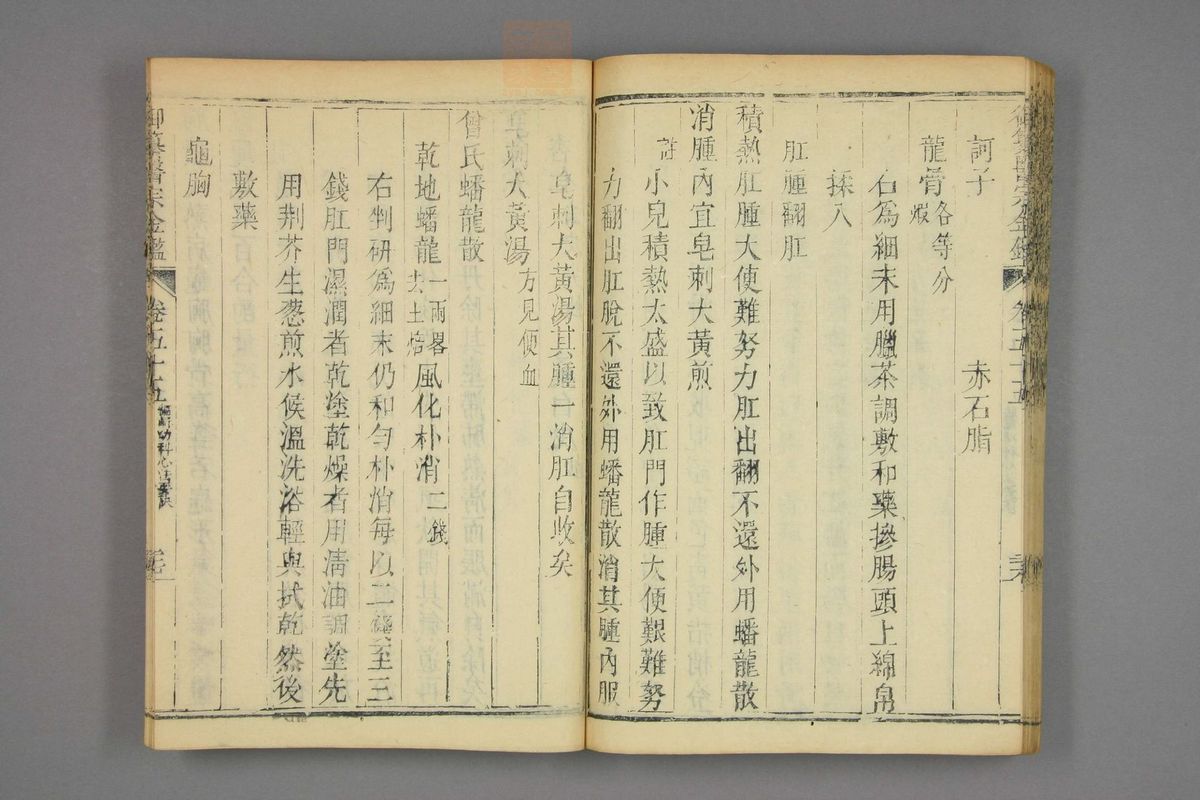 訶子 赤石脂
龍骨各等分煅
右爲細末用臘茶調敷和藥摻腸頭上綿帛
揉入
肛腫翻肛
積熱肛腫大便難努力肛出翻不還外用蟠龍散
消腫內宜皂刺大黃煎
註小兒積熱太盛以致肛門作腫大便艱難努
力翻出肛脫不還外用蟠龍散消其腫內服
皂刺大黃湯其腫一消肛自收矣
皂刺大黃湯方見便血
曾氏蟠龍散
乾地蟠龍一兩畧去土焙風化朴消二錢
右剉研爲細末仍和勻朴消每以二錢至三
錢肛門濕潤者乾塗乾燥者用清油調塗先
用荆芥生葱煎水候溫洗浴輕與拭乾然後
敷藥
龜胸
御纂醫宗金鑑
卷五十五
編輯幼科心法要訣